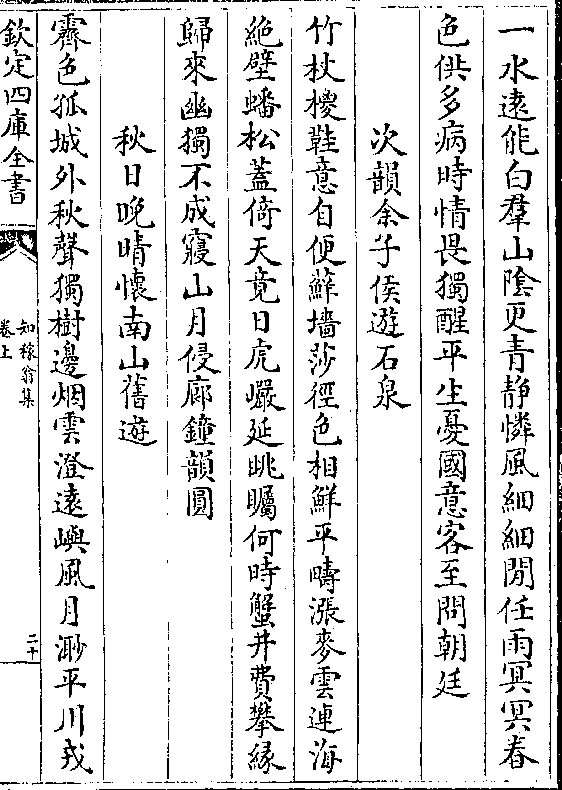 一水遠能白羣山陰更青静憐風細細閒任雨冥冥春
色供多病時情畏獨醒平生憂國意客至問朝廷
次韻余子侯遊石泉
竹杖椶鞋意自便蘚墻莎徑色相鮮平疇漲麥雲連海
絶壁蟠松蓋倚天竟日虎巖延眺矚何時蟹井費攀緣
歸來幽獨不成寢山月侵廊鐘韻圓
秋日晚晴懷南山舊遊
霽色孤城外秋聲獨樹邊烟雲澄遠嶼風月渺平川戎
欽定四庫全書
知稼翁集
卷上
二十